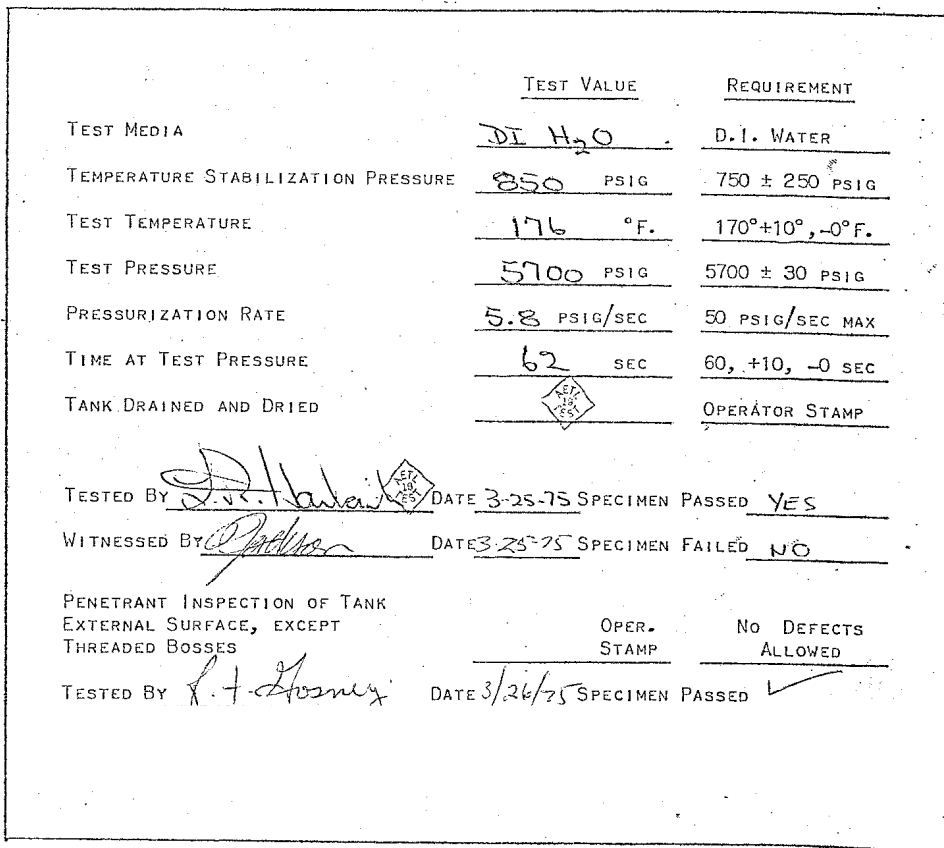 TEST VALUE REQUIREMENT
TEST MEDIA DI H2O . D.I. WATER
TEMPERATURE STABILIZATION PRESSURE 850 PSIG 750 ± 250 PSIG
TEST TEMPERATURE 176 °F. 170°+10°, -0°F.
TEST PRESSURE 5700 PSIG 5700 ± 30 PSIG
PRESSURIZATION RATE 5.8 PSIG/SEC 50 PSIG/SEC MAX
TIME AT TEST PRESSURE 62 SEC 60, +10, -0 SEC
TANK DRAINED AND DRIED AETL 18 TEST OPERATOR STAMP
TESTED BY D.R. AETL 18 TEST DATE 3-25-75 SPECIMEN PASSED YES
WITNESSED BY DATE 3-25-75 SPECIMEN FAILED NO
PENETRANT INSPECTION OF TANK
EXTERNAL SURFACE, EXCEPT OPER. NO DEFECTS
THREADED BOSSES STAMP ALLOWED
TESTED BY DATE 3/26/75 SPECIMEN PASSED ✓